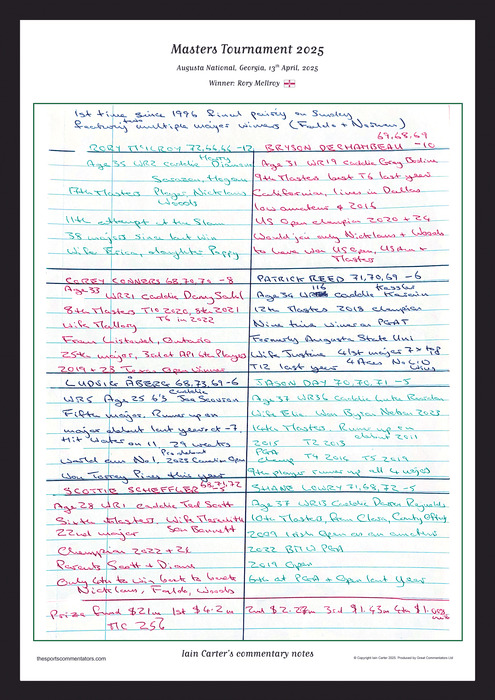 Masters Tournament 2025
Augusta National, Georgia, 13th April, 2025
Winner: Rory McIlroy
1st time since 1996 final pairing on Sunday
featuring multiple major winners (Faldo + Norman)
RORY McILROY 72,66,66 -12
Age 35 WR2 caddie Harry Diamond
Sarazen, Hogan
17th Masters Player, Nicklaus
Woods
11th attempt at the Slam
38 majors since last win
Wife Erica, daughter Poppy
69,68,69
BRYSON DECHAMBEAU -10
Age 31 WR19 caddie Greg Bodine
9th Masters best T6 last year
Californian, lives in Dallas
low amateur @ 2016
US Open champion 2020 + 24
Would join only Nicklaus + Woods
to have won US Open, US Am +
Masters
COREY CONNERS 68,70,70 -8
Age 33
WR21 caddie Danny Sahl
8th Masters T10 2020, 8th 2021
T6 in 2022
Wife Mallory
From Listowel, Ontario
25th major, 3rd at API 6th Players
2019 + 23 Texas Open Winner
PATRICK REED 71,70,69 -6
Age 34 WR 116 caddie Kessler Karain
12th Masters 2018 champion
Nine time winner on PGAT
Formerly Augusta State Uni
Wife Justine 41st major 7x top
T12 last year 4 Aces No LIV
wins
LUDVIG ÅBERG 68,73,69 -6
WR5 Age 25 6'3 caddie Joe Skovron
Fifth major. Runner up on
major debut last year at -7.
Hit water on 11. 29 weeks
World am No 1, 2023 Canadian Open
Pro debut
Won Torrey Pines this year
JASON DAY 70,70,71 -5
Age 37 WR36 caddie Luke Reardon
Wife Ellie Won Byron Nelson 2023
14th Masters. Runner up on
debut 2011
2015 T2 2013
PGA
champ T4 2016 T5 2019
9th player runner up all 4 majors
SCOTTIE SCHEFFLER 68,71,72 -5
Age 28 WR1 caddie Ted Scott
Sixth Masters, Wife Meredith
22nd major Son Bennett
Champion 2022 + 24
Parents Scott + Diane
Only 4th to win back to back
Nicklaus, Faldo, Woods
SHANE LOWRY 71,68,72 -5
Age 37 WR13 Caddie Darren Reynolds
10th Masters, from Clara, County Offaly
2009 Irish Open as an amateur
2022 BMW PGA
2019 Open
6th at PGA + Open last year
Prize fund $21m 1st $4.2m 2nd $2.27m 3rd $1.43m 4th $1.008
mill
TIC 256
Iain Carter's commentary notes
thesportscommentators.com
© Copyright Iain Carter 2025. Produced by Great Commentaries Ltd